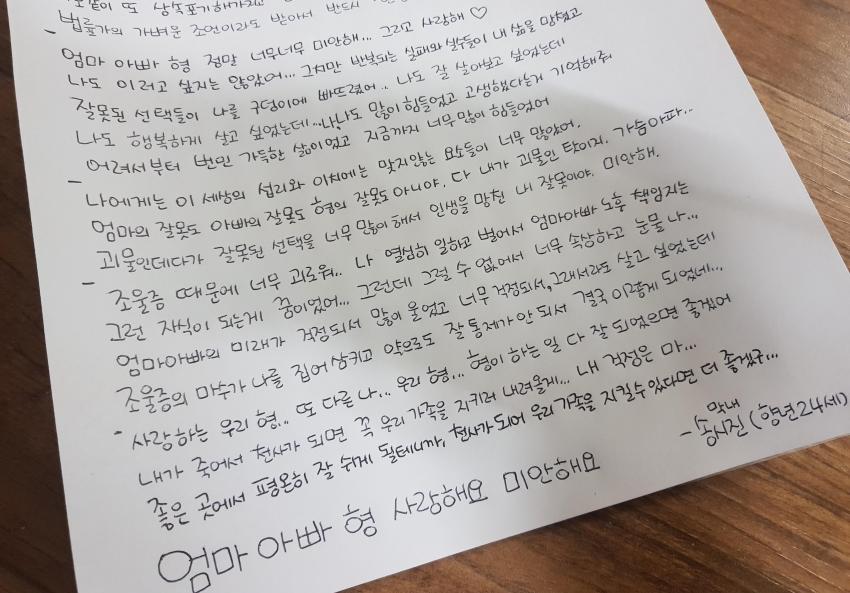 또 상속포기해가지고
법률가의 가벼운 조언이라도 받아서 반드시
- 엄마 아빠 형 정말 너무너무 미안해... 그리고 사랑해 ♡
나도 이러고 싶지는 않았어... 그치만 반복되는 실패와 실수들이 내 삶을 망쳤고
잘못된 선택들이 나를 구덩이에 빠뜨렸어.. 나도 잘 살아보고 싶었는데
나도 행복하게 살고 싶었는데... 나도 많이 힘들었고 고생했다는거 기억해줘
어려서부터 번민 가득한 삶이었고 지금까지 너무 많이 힘들었어
- 나에게는 이 세상의 섭리와 이치에는 맞지않는 요소들이 너무 많았어.
엄마의 잘못도 아빠의 잘못도 형의 잘못도 아니야. 다 내가 괴물인 탓이지. 가슴아파...
괴물인데다가 잘못된 선택을 너무 많이해서 인생을 망친 내 잘못이야. 미안해.
- 조울증 때문에 너무 괴로워.. 나 열심히 일하고 벌어서 엄마아빠 노후 책임지는
그런 자식이 되는게 꿈이었어... 그런데 그럴 수 없어서 너무 속상하고 눈물 나...
엄마아빠의 미래가 걱정되서 많이 울었고 너무 걱정되서, 그래서라도 살고 싶었는데
조울증의 마수가 나를 집어 삼키고 약으로도 잘 통제가 안 되서 결국 이렇게 되었네...
- 사랑하는 우리 형... 또 다른 나... 우리 형... 형이 하는 일 다 잘 되었으면 좋겠어
내가 죽어서 천사가 되면 꼭 우리 가족을 지키러 내려올게... 내 걱정은 마...
좋은 곳에서 평온히 잘 쉬게 될테니까, 천사가 되어 우리 가족을 지킬 수 있다면 더 좋겠구...
- 막내 송시진 (향년 24세)
엄마 아빠 형 사랑해요 미안해요